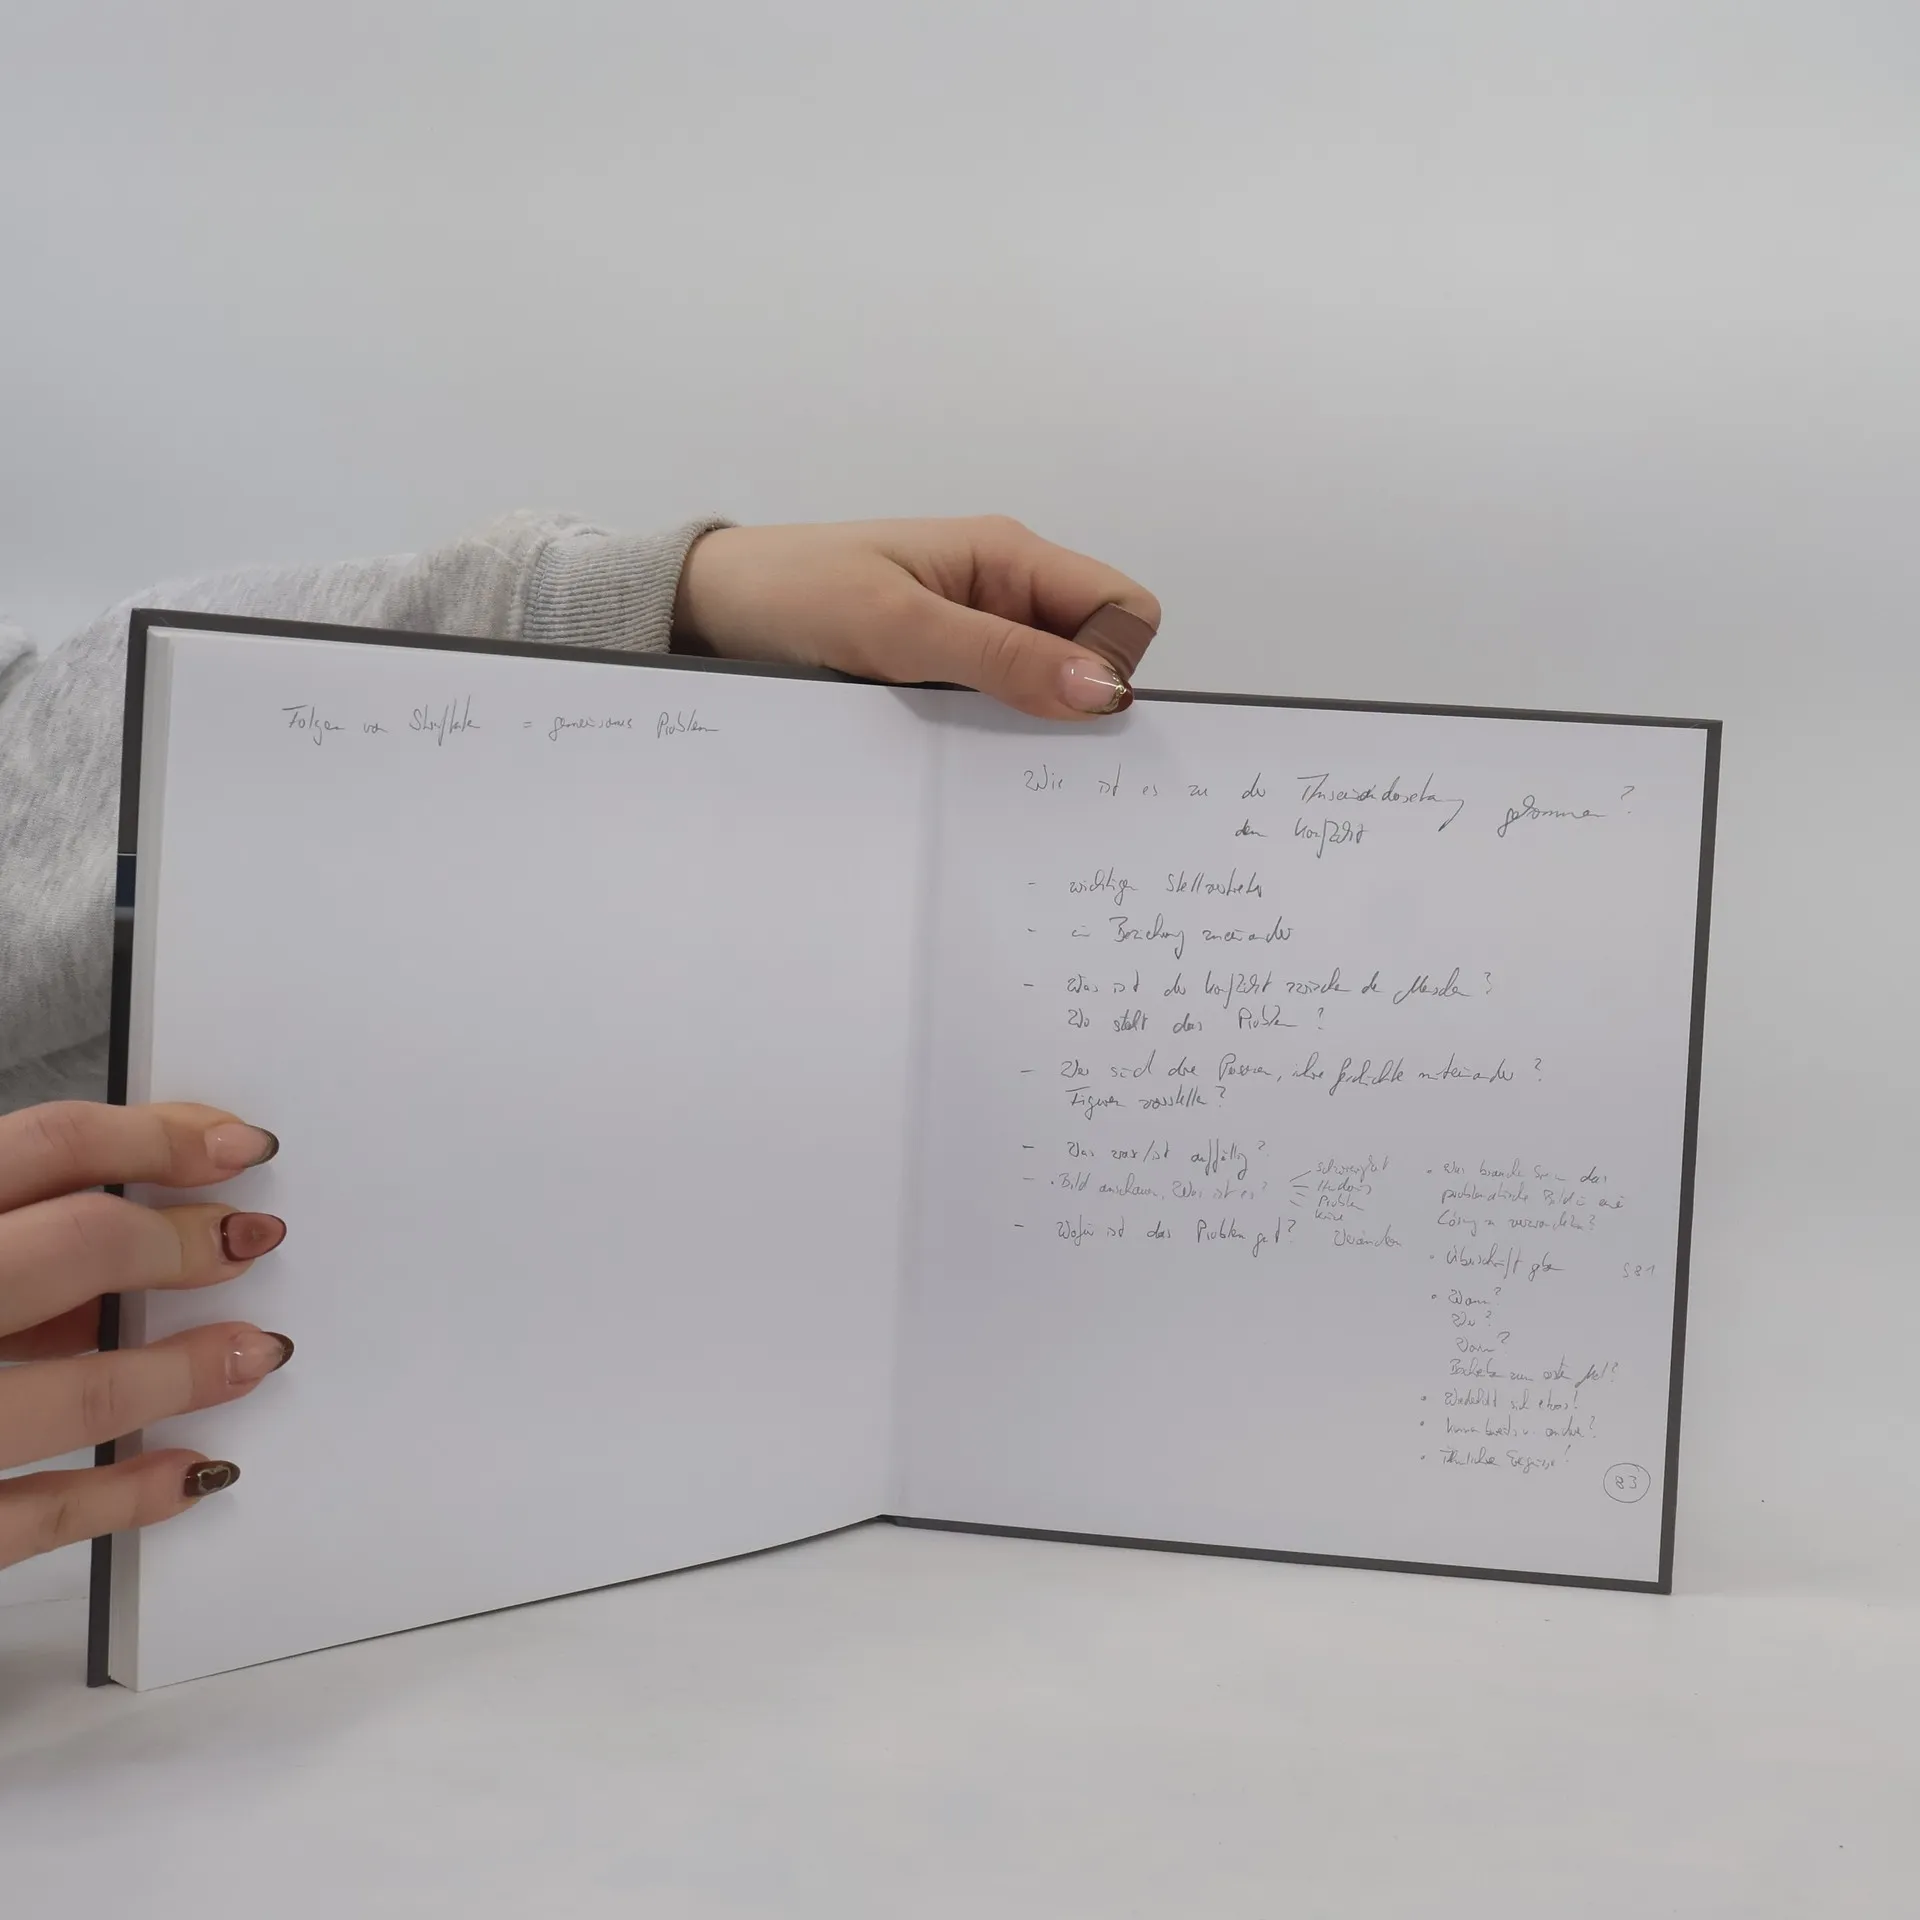 Folgen von Straftaten = gemeinsames Problem
Wie ist es zu der Auseinandersetzung gekommen?
dem Konflikt
- wichtigen Stellvertreter
- in Beziehung zueinander
- Was ist der Konflikt zwischen den Menschen?
Wo steckt das Problem?
- Wer sind die Personen, ihre Geschichte miteinander?
Figuren vorstellen?
- Was war/ist auffällig?
- · Bild anschauen, Was ist es?
Schwierigkeit
Hindernis
Problem
Krise
- Wofür ist das Problem gut?
• Was brauchen Sie um das
problematische Bild in eine
Lösung zu verwandeln?
• Überschrift geben
S 81
• Wann?
Wo?
Wann?
zum ersten Mal?
• Wiederholt sich etwas?
• Ähnliche
83